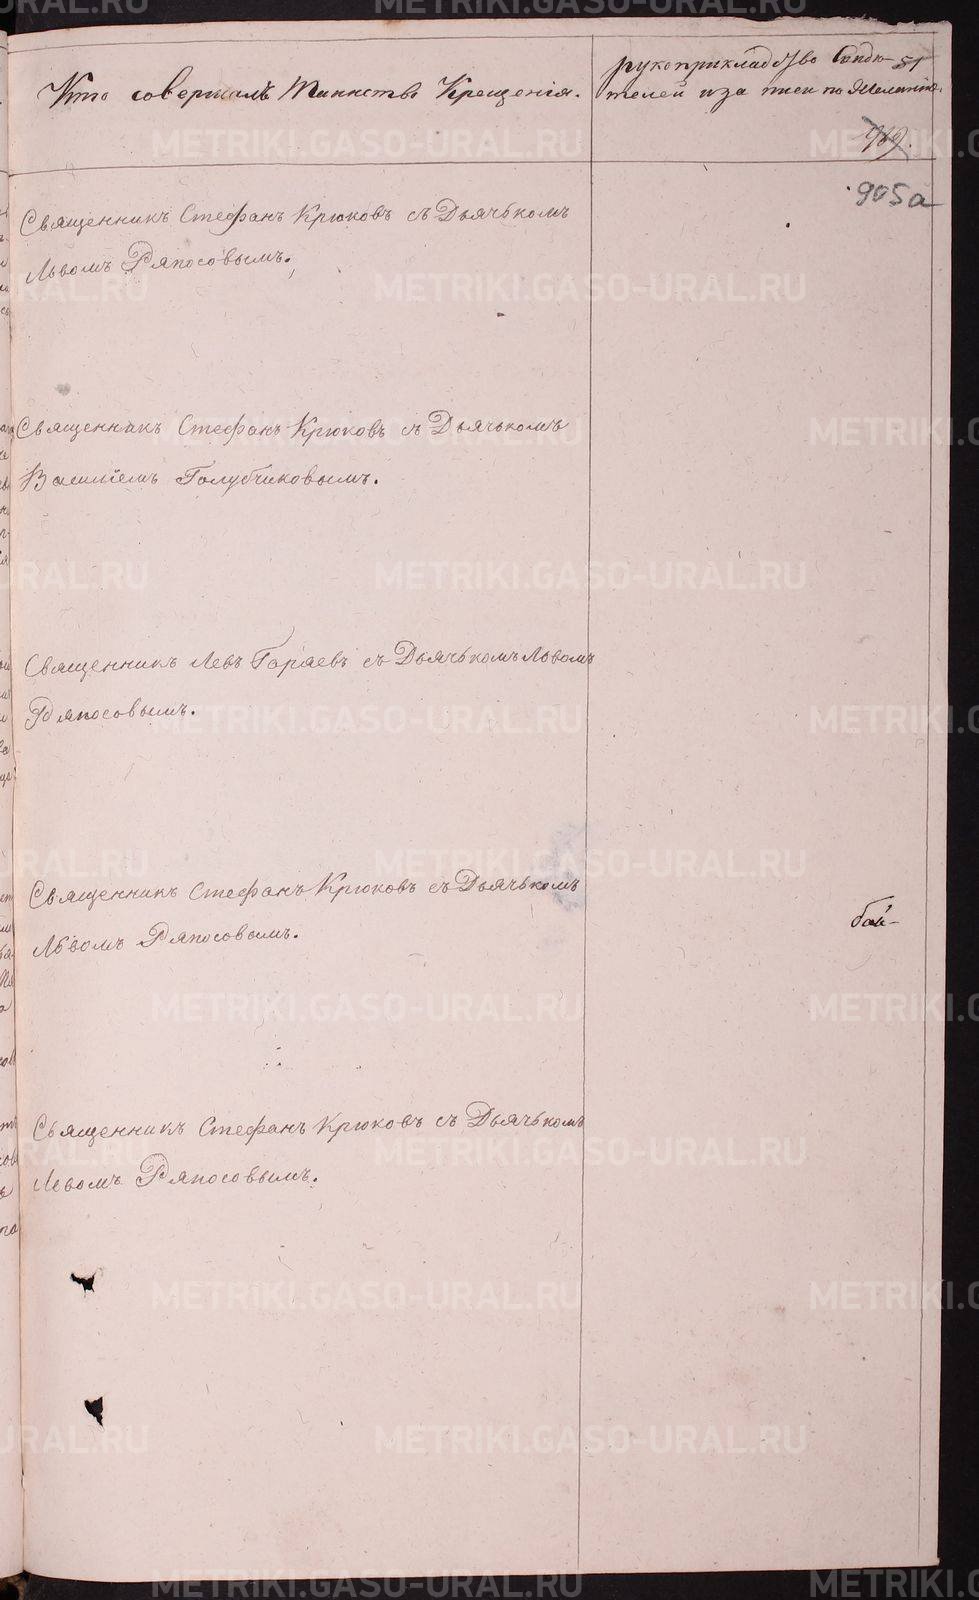 Кто совершалъ Таинство Крещенія.
рукоприкладство Свидѣ-
телей иза писи по Желанію.
51
969.
905а
Священникъ Стефанъ Крюковъ съ Дьячькомъ
Львомъ Ряпосовымъ.
Священникъ Стефанъ Крюковъ съ Дьячькомъ
Васильемъ Голубчиковымъ.
Священникъ Левъ Гаряевъ съ Дьячькомъ Львомъ
Ряпосовымъ.
Священникъ Стефанъ Крюковъ съ Дьячькомъ
Львомъ Ряпосовымъ.
бай-
Священникъ Стефанъ Крюковъ съ Дьячькомъ
Левомъ Ряпосовымъ.
METRIKI.GASO-URAL.RU